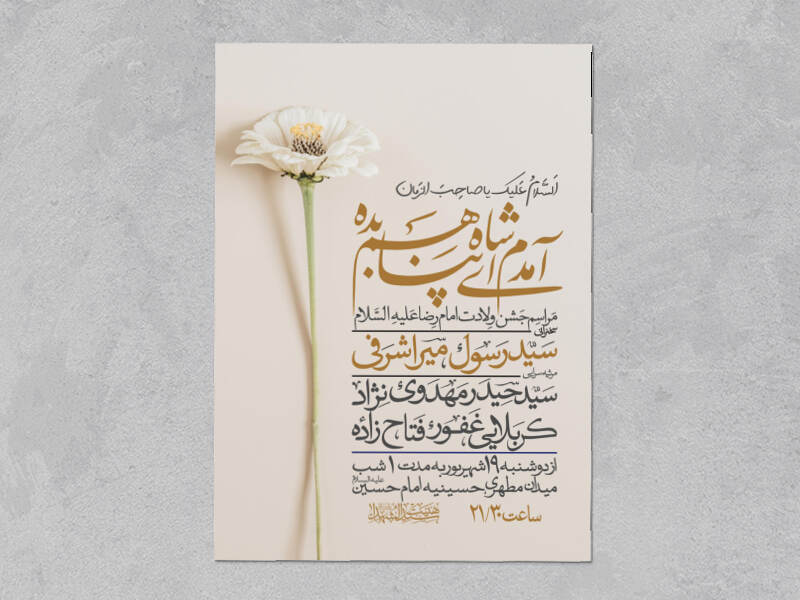 السَّلامُ عَلیکَ یا صاحِبَ الزَّمان
آمدم ای شاه پناهم بده
مَراسِم جَشن وِلادت امام رِضا عَلیهِ السَّلام
سخنران
سَیّد رَسول میراشرَفی
مرثیه سرایی
سَیّد حِیدَر مَهدَوی نِژاد
کَربَلایی غَفور فَتّاح زاده
از دوشنبه ۱۹ شهریور به مدت ۱ شب
میدان مطهری، حسینیه امام حسین علیه السلام
ساعت ۲۱/۳۰